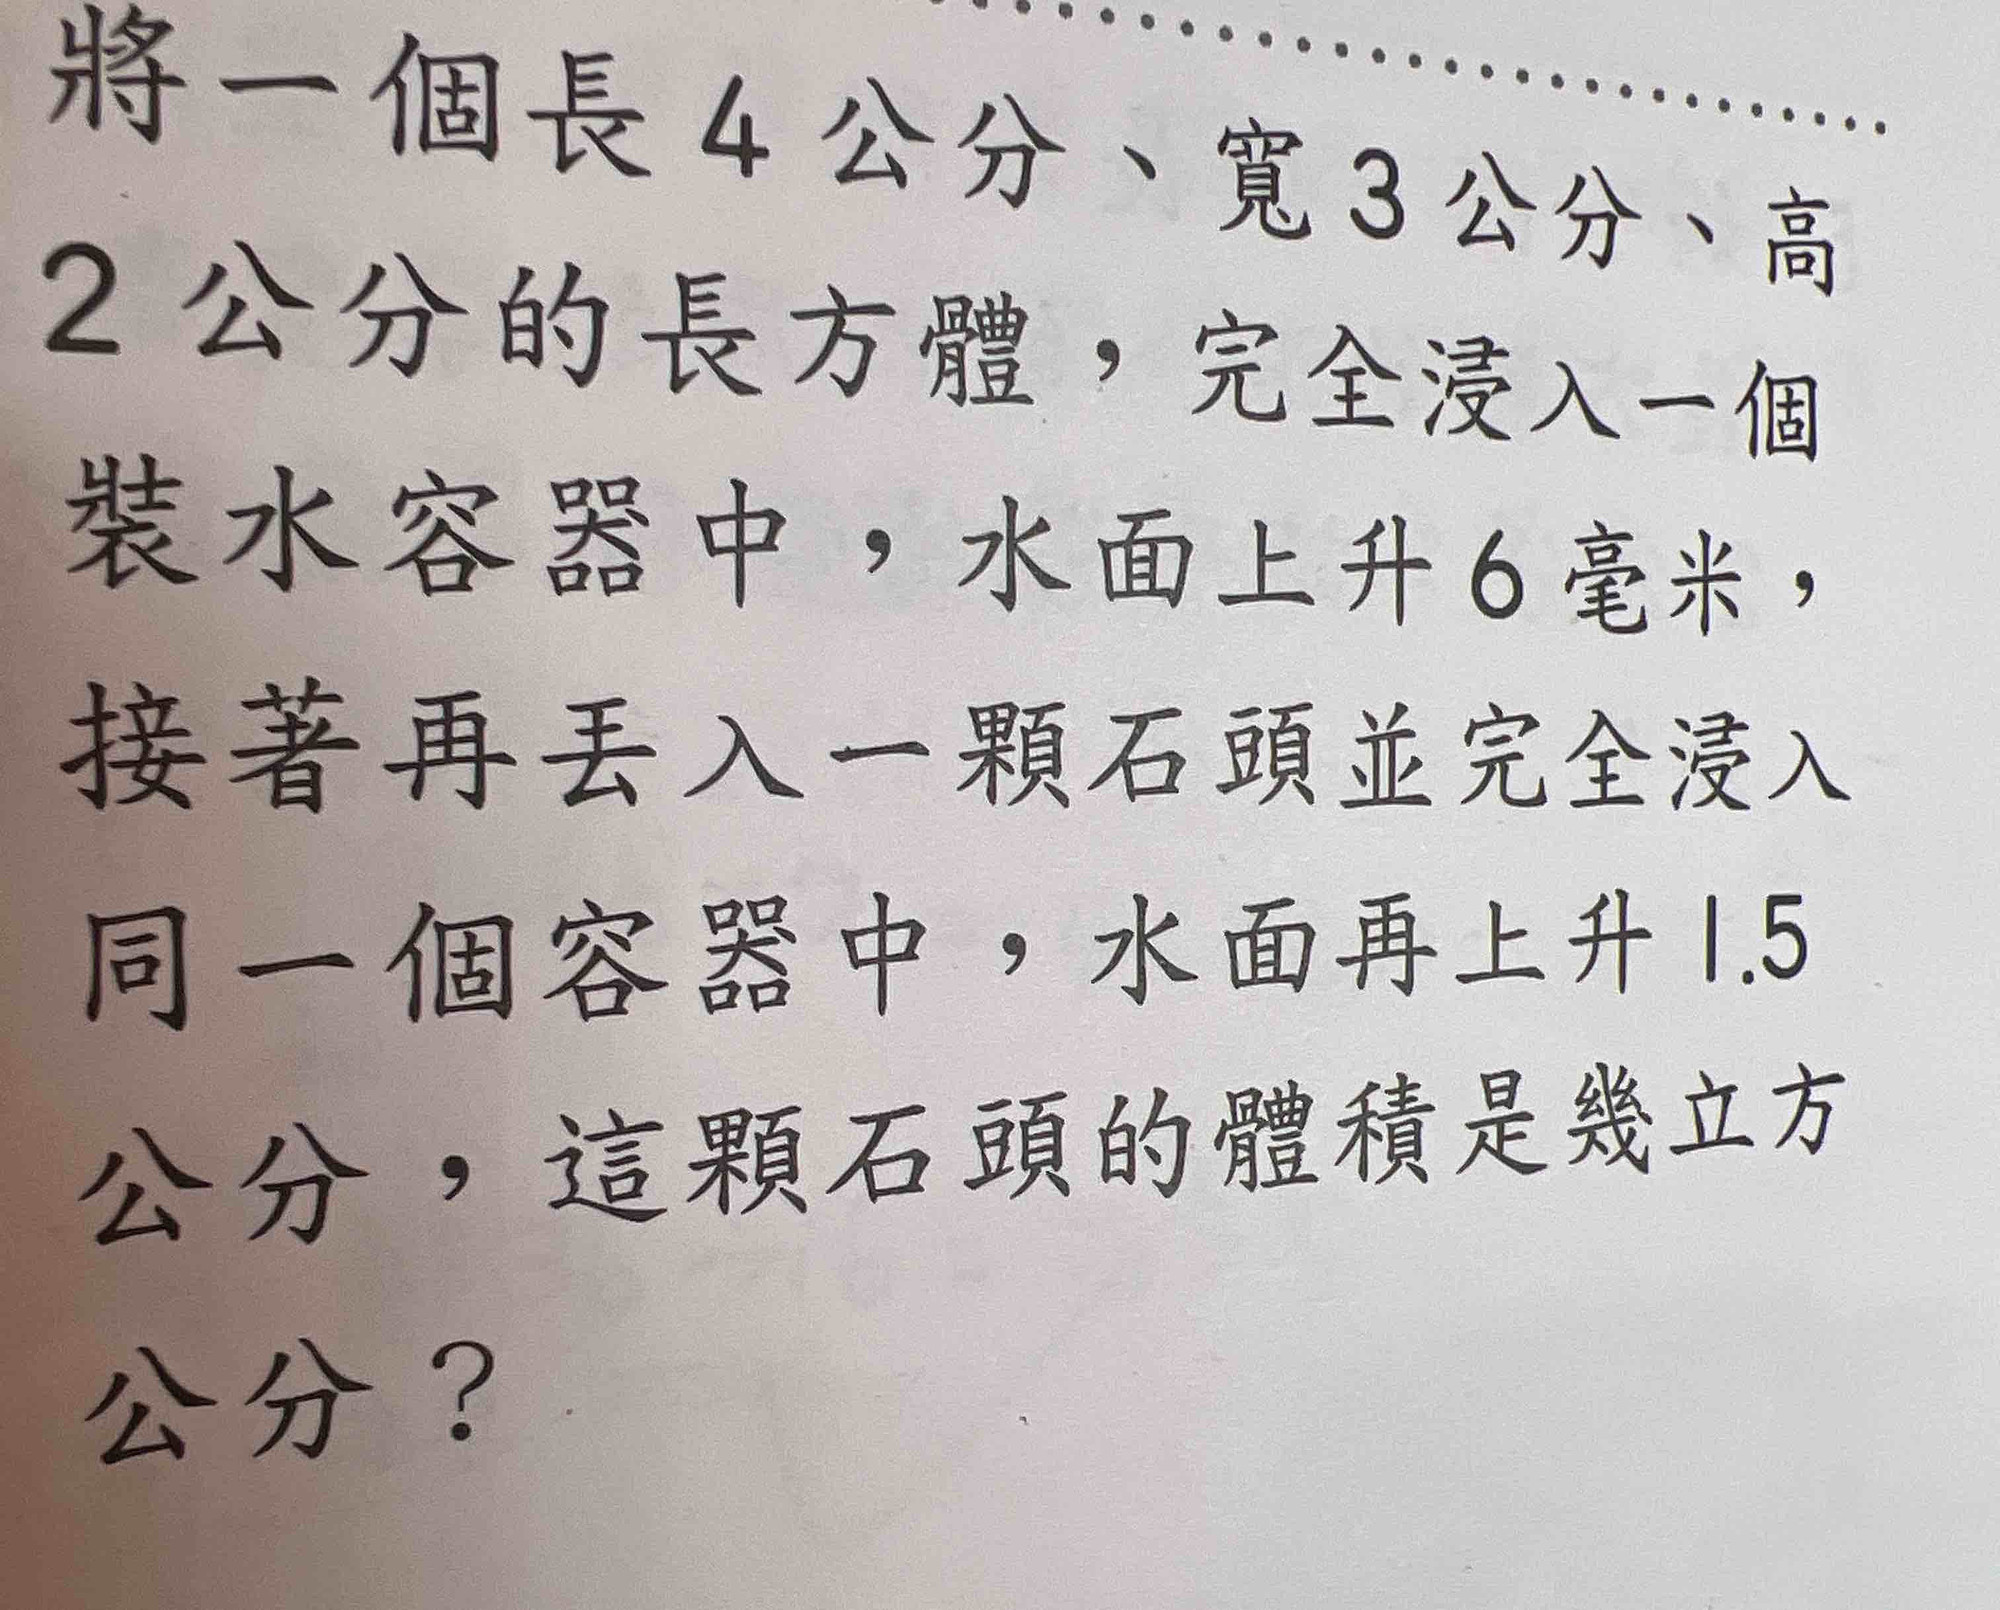 將一個長4公分、寬3公分、高
2公分的長方體，完全浸入一個
裝水容器中，水面上升6毫米，
接著再丟入一顆石頭並完全浸入
同一個容器中，水面再上升1.5
公分，這顆石頭的體積是幾立方
公分？